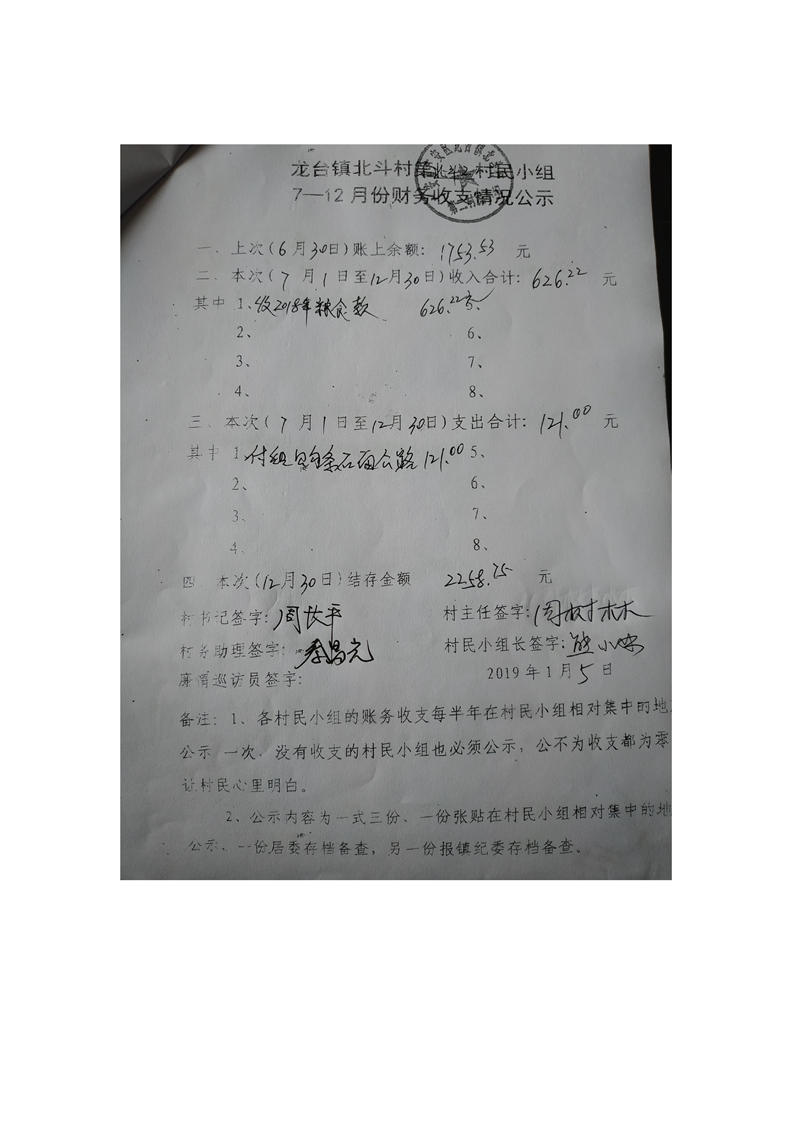 龙台镇北斗村第 村民小组
7—12月份财务收支情况公示
一、上次(6月30日)账上余额: 1753.53 元
二、本次(7月1日至12月30日)收入合计: 626.22 元
其中 1、收2018年粮食款 626.22元
2、 6、
3、 7、
4、 8、
三、本次(7月1日至12月30日)支出合计: 121.00 元
其中 1、付组 条石面公路 121.00 5、
2、 6、
3、 7、
4、 8、
四、本次(12月30日)结存金额 2258.75 元
村书记签字: 周长平 村主任签字: 周树林
村务助理签字: 秦昌元 村民小组长签字: 熊小
廉情巡访员签字: 2019年1月5日
备注:1、各村民小组的账务收支每半年在村民小组相对集中的地
公示一次,没有收支的村民小组也必须公示,公不为收支都为零
让村民心里明白。
2、公示内容为一式三份、一份张贴在村民小组相对集中的地
公示、一份居委存档备查,另一份报镇纪委存档备查。